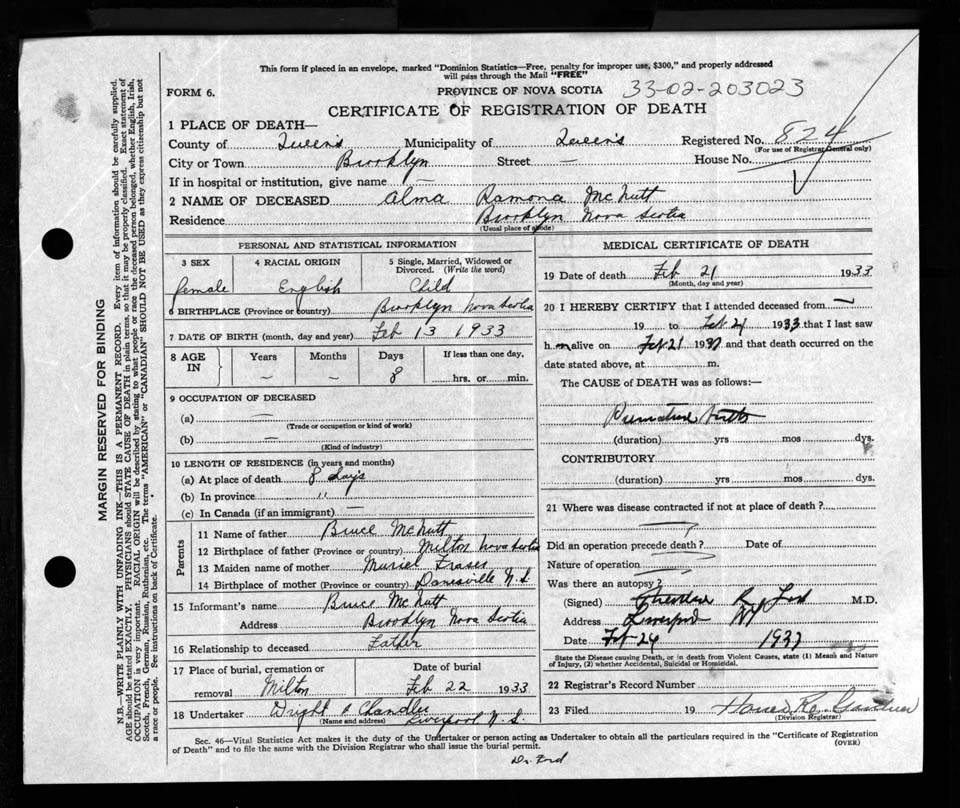 This form if placed in an envelope, marked "Dominion Statistics—Free, penalty for improper use, $300," and properly addressed
will pass through the Mail "FREE"
FORM 6.
PROVINCE OF NOVA SCOTIA 33-02-203023
CERTIFICATE OF REGISTRATION OF DEATH
1 PLACE OF DEATH—
County of Queen's Municipality of Queen's Registered No. 824
(For use of Registrar General only)
City or Town Brooklyn Street — House No.
If in hospital or institution, give name —
2 NAME OF DECEASED Alma Ramona McNutt
Residence Brooklyn Nova Scotia
(Usual place of abode)
PERSONAL AND STATISTICAL INFORMATION
3 SEX 4 RACIAL ORIGIN 5 Single, Married, Widowed or
Divorced. (Write the word)
Female English Child
6 BIRTHPLACE (Province or country) Brooklyn Nova Scotia
7 DATE OF BIRTH (month, day and year) Feb 13 1933
8 AGE IN Years Months Days If less than one day,
— — 8 hrs. or min.
9 OCCUPATION OF DECEASED
(a) —
(Trade or occupation or kind of work)
(b) —
(Kind of industry)
10 LENGTH OF RESIDENCE (in years and months)
(a) At place of death 8 days
(b) In province "
(c) In Canada (if an immigrant) —
Parents
11 Name of father Bruce McNutt
12 Birthplace of father (Province or country) Milton Nova Scotia
13 Maiden name of mother Muriel Fraser
14 Birthplace of mother (Province or country) Danesville N.S.
15 Informant's name Bruce McNutt
Address Brooklyn Nova Scotia
16 Relationship to deceased Father
17 Place of burial, cremation or Date of burial
removal Milton Feb 22 1933
18 Undertaker Dwight Chandler
(Name and address) Liverpool N.S.
MEDICAL CERTIFICATE OF DEATH
19 Date of death Feb 21 1933
(Month, day and year)
20 I HEREBY CERTIFY that I attended deceased from —
19 to Feb 21 1933 that I last saw
h alive on Feb 21 19 and that death occurred on the
date stated above, at m.
The CAUSE of DEATH was as follows:—
Premature birth
(duration) yrs mos dys.
CONTRIBUTORY
(duration) yrs. mos. dys.
21 Where was disease contracted if not at place of death?
Did an operation precede death? Date of
Nature of operation
Was there an autopsy?
(Signed) Theodore R Ford M.D.
Address Liverpool NS
Date Feb 24
State the Disease causing Death, or in death from Violent Causes, state (1) Means and Nature
of Injury, (2) whether Accidental, Suicidal or Homicidal.
22 Registrar's Record Number
23 Filed 19
(Division Registrar)
Sec. 46—Vital Statistics Act makes it the duty of the Undertaker or person acting as Undertaker to obtain all the particulars required in the "Certificate of Registration
of Death" and to file the same with the Division Registrar who shall issue the burial permit. (OVER)
Dr. Ford
MARGIN RESERVED FOR BINDING
N.B.—WRITE PLAINLY WITH UNFADING INK—THIS IS A PERMANENT RECORD. Every item of information should be carefully supplied.
AGE should be stated EXACTLY. PHYSICIANS should STATE CAUSE OF DEATH in plain terms, so that it may be properly classified. Exact statement of
OCCUPATION is very important. RACIAL ORIGIN will be described by stating to what people or race the deceased person belonged, whether English, Irish,
Scotch, French, German, Russian, Ruthenian, etc. The terms "AMERICAN" or "CANADIAN" SHOULD NOT BE USED as they express citizenship but not
a race or people. See instructions on back of Certificate.